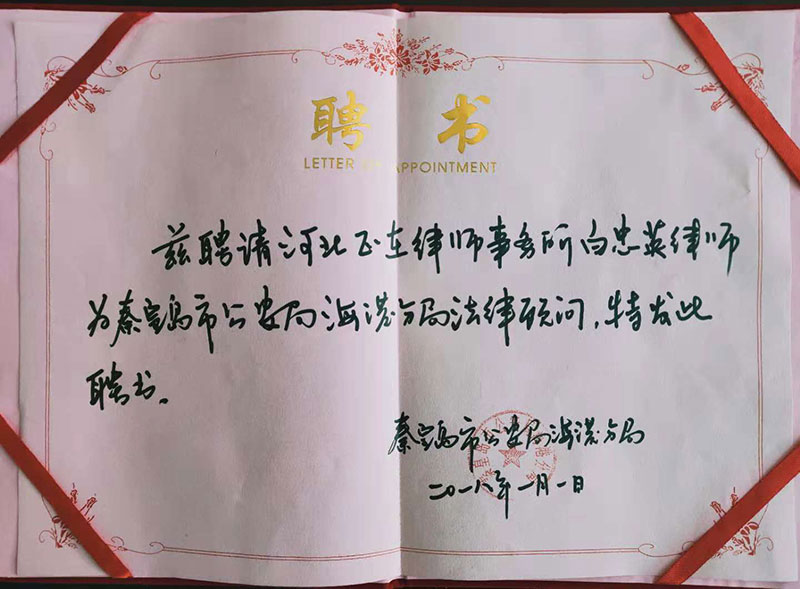 聘 书
LETTER OF APPOINTMENT
兹聘请河北正在律师事务所白忠英律师
为秦皇岛市公安局海港分局法律顾问,特发此
聘书。
秦皇岛市公安局海港分局
二〇一八年一月一日